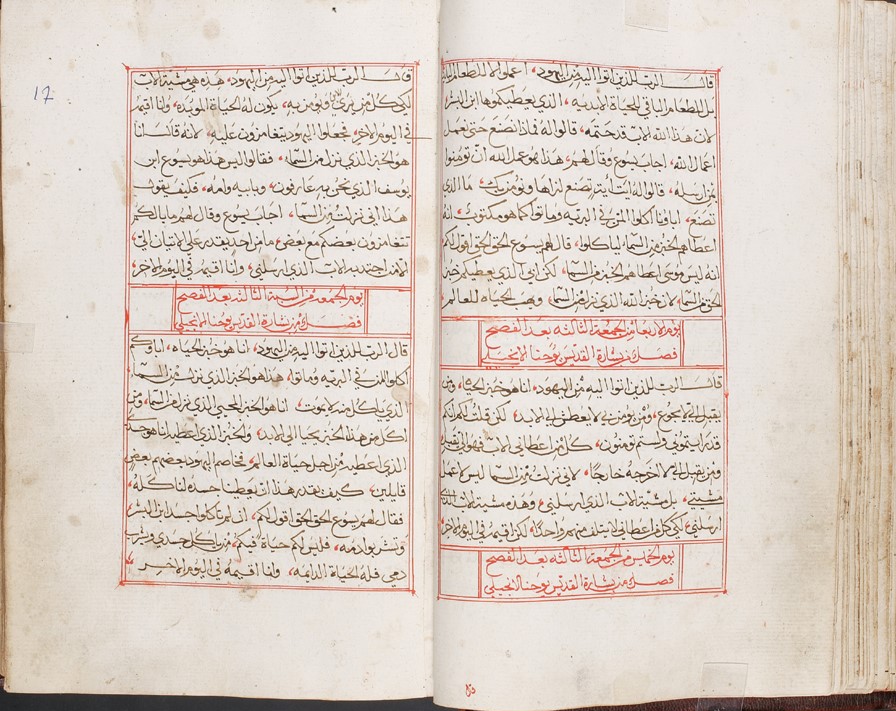 قال الرب للذين اتوا اليه من اليهود، اعملوا لا للطعام البايد
بل للطعام الباقي للحياة الابديه، الذي يعطيكموها ابن البشر،
لان هذا الله الاب قد ختمه، قالوا له فماذا نصنع حتى نعمل
اعمال الله، اجاب يسوع وقال لهم، هذا هو عمل الله ان تومنوا
بمن ارسله، قالوا له ايت اية تصنع لنراها ونومن بك، ما الذي
تصنع، اباونا اكلوا المن في البريه وماتوا كما هو مكتوب، انه
اعطاهم الخبز من السماء لياكلوا، قال لهم يسوع الحق الحق اقول لكم
انه ليس موسى اعطاهم الخبز من السماء، لكن ابي الذي يعطيكم خبز
الحق من السماء، لان خبز الله الذي نزل من السماء ويهب الحياه للعالم،
يوم الاربعا من الجمعة الثالثه بعد الفصح
فصل من بشارة القديس يوحنا الانجيلي
قال الرب للذين اتوا اليه من اليهود، انا هو خبز الحياه، من
يقبل الي لا يجوع، ومن يومن بي لا يعطش الى الابد، لكن قلت لكم انكم
قد رايتموني ولستم تومنون، كل من اعطاني الاب فهو الي يقبل
ومن يقبل الي لا اخرجه خارجا، لاني نزلت من السما ليس لاعمل
مشيتي، بل مشية الاب الذي ارسلني، وهذه مشية الاب الذي
ارسلني، لكي كل من اعطاني لا يتلف منهم احدا، لكن اقيمه في اليوم الاخر،
يوم الخميس من الجمعة الثالثه بعد الفصح
فصل من بشارة القديس يوحنا الانجيلي
17
قال الرب للذين اتوا اليه من اليهود، هذه هي مشية الاب
لكي كل من يرى الابن ويومن به، يكون له الحياة الموبده، وانا اقيمه
في اليوم الاخر، فجعلوا اليهود يتغامزون عليه، لانه قال انا
هو الخبز الذي نزل من السماء، فقالوا اليس هذا هو يسوع ابن
يوسف الذي نحن به عارفون، وبابيه وامه، فكيف يقول
هذا اني نزلت من السماء، اجاب يسوع وقال لهم ما بالكم
تتغامزون بعضكم مع بعض، ما من احد يقدر على الاتيان الي،
الا من اجتذبه الاب الذي ارسلني، وانا اقيمه في اليوم الاخر،
يوم الجمعه من السبة الثالثه بعد الفصح
فصل من بشارة القديس يوحنا الانجيلي
قال الرب للذين اتوا اليه من اليهود، انا هو خبز الحياه، اباوكم
اكلوا المن في البريه وماتوا، هذا هو الخبز الذي نزل من السما،
الذي ياكل منه لا يموت، انا هو الخبز المحيي الذي نزل من السما، ومن
اكل من هذا الخبز يحيا الى الابد، والخبز الذي اعطيه انا هو جسدي
الذي اعطيه من اجل حياة العالم، فخاصم اليهود بعضهم بعض
قايلين، كيف يقدر هذا ان يعطينا جسده لناكله،
فقال لهم يسوع الحق الحق اقول لكم، ان لم تاكلوا جسد ابن البشر،
وتشربوا دمه، فليس لكم حياة فيكم، من ياكل جسدي ويشرب
دمي فله الحياة الدايمه، وانا اقيمه في اليوم الاخر